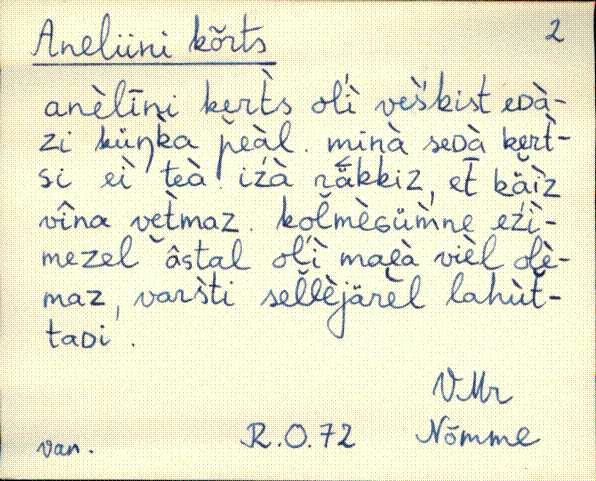 Aneliini kõrts
2
anèlīni kerт̀s olì veškist eᴅà-
zi küŋka pěàl. minà seᴅà kerт̀-
si eì teà. izà räkkiz, eт̄ käìz
vîna vet̀maz. kolmèɢüm̀ne ezì-
mezel âstal olì maea vièl olè-
maz, varšti sellèjärèl lahùt̆-
taᴅi.
V.Mr
van.
R.O.72
Nõmme